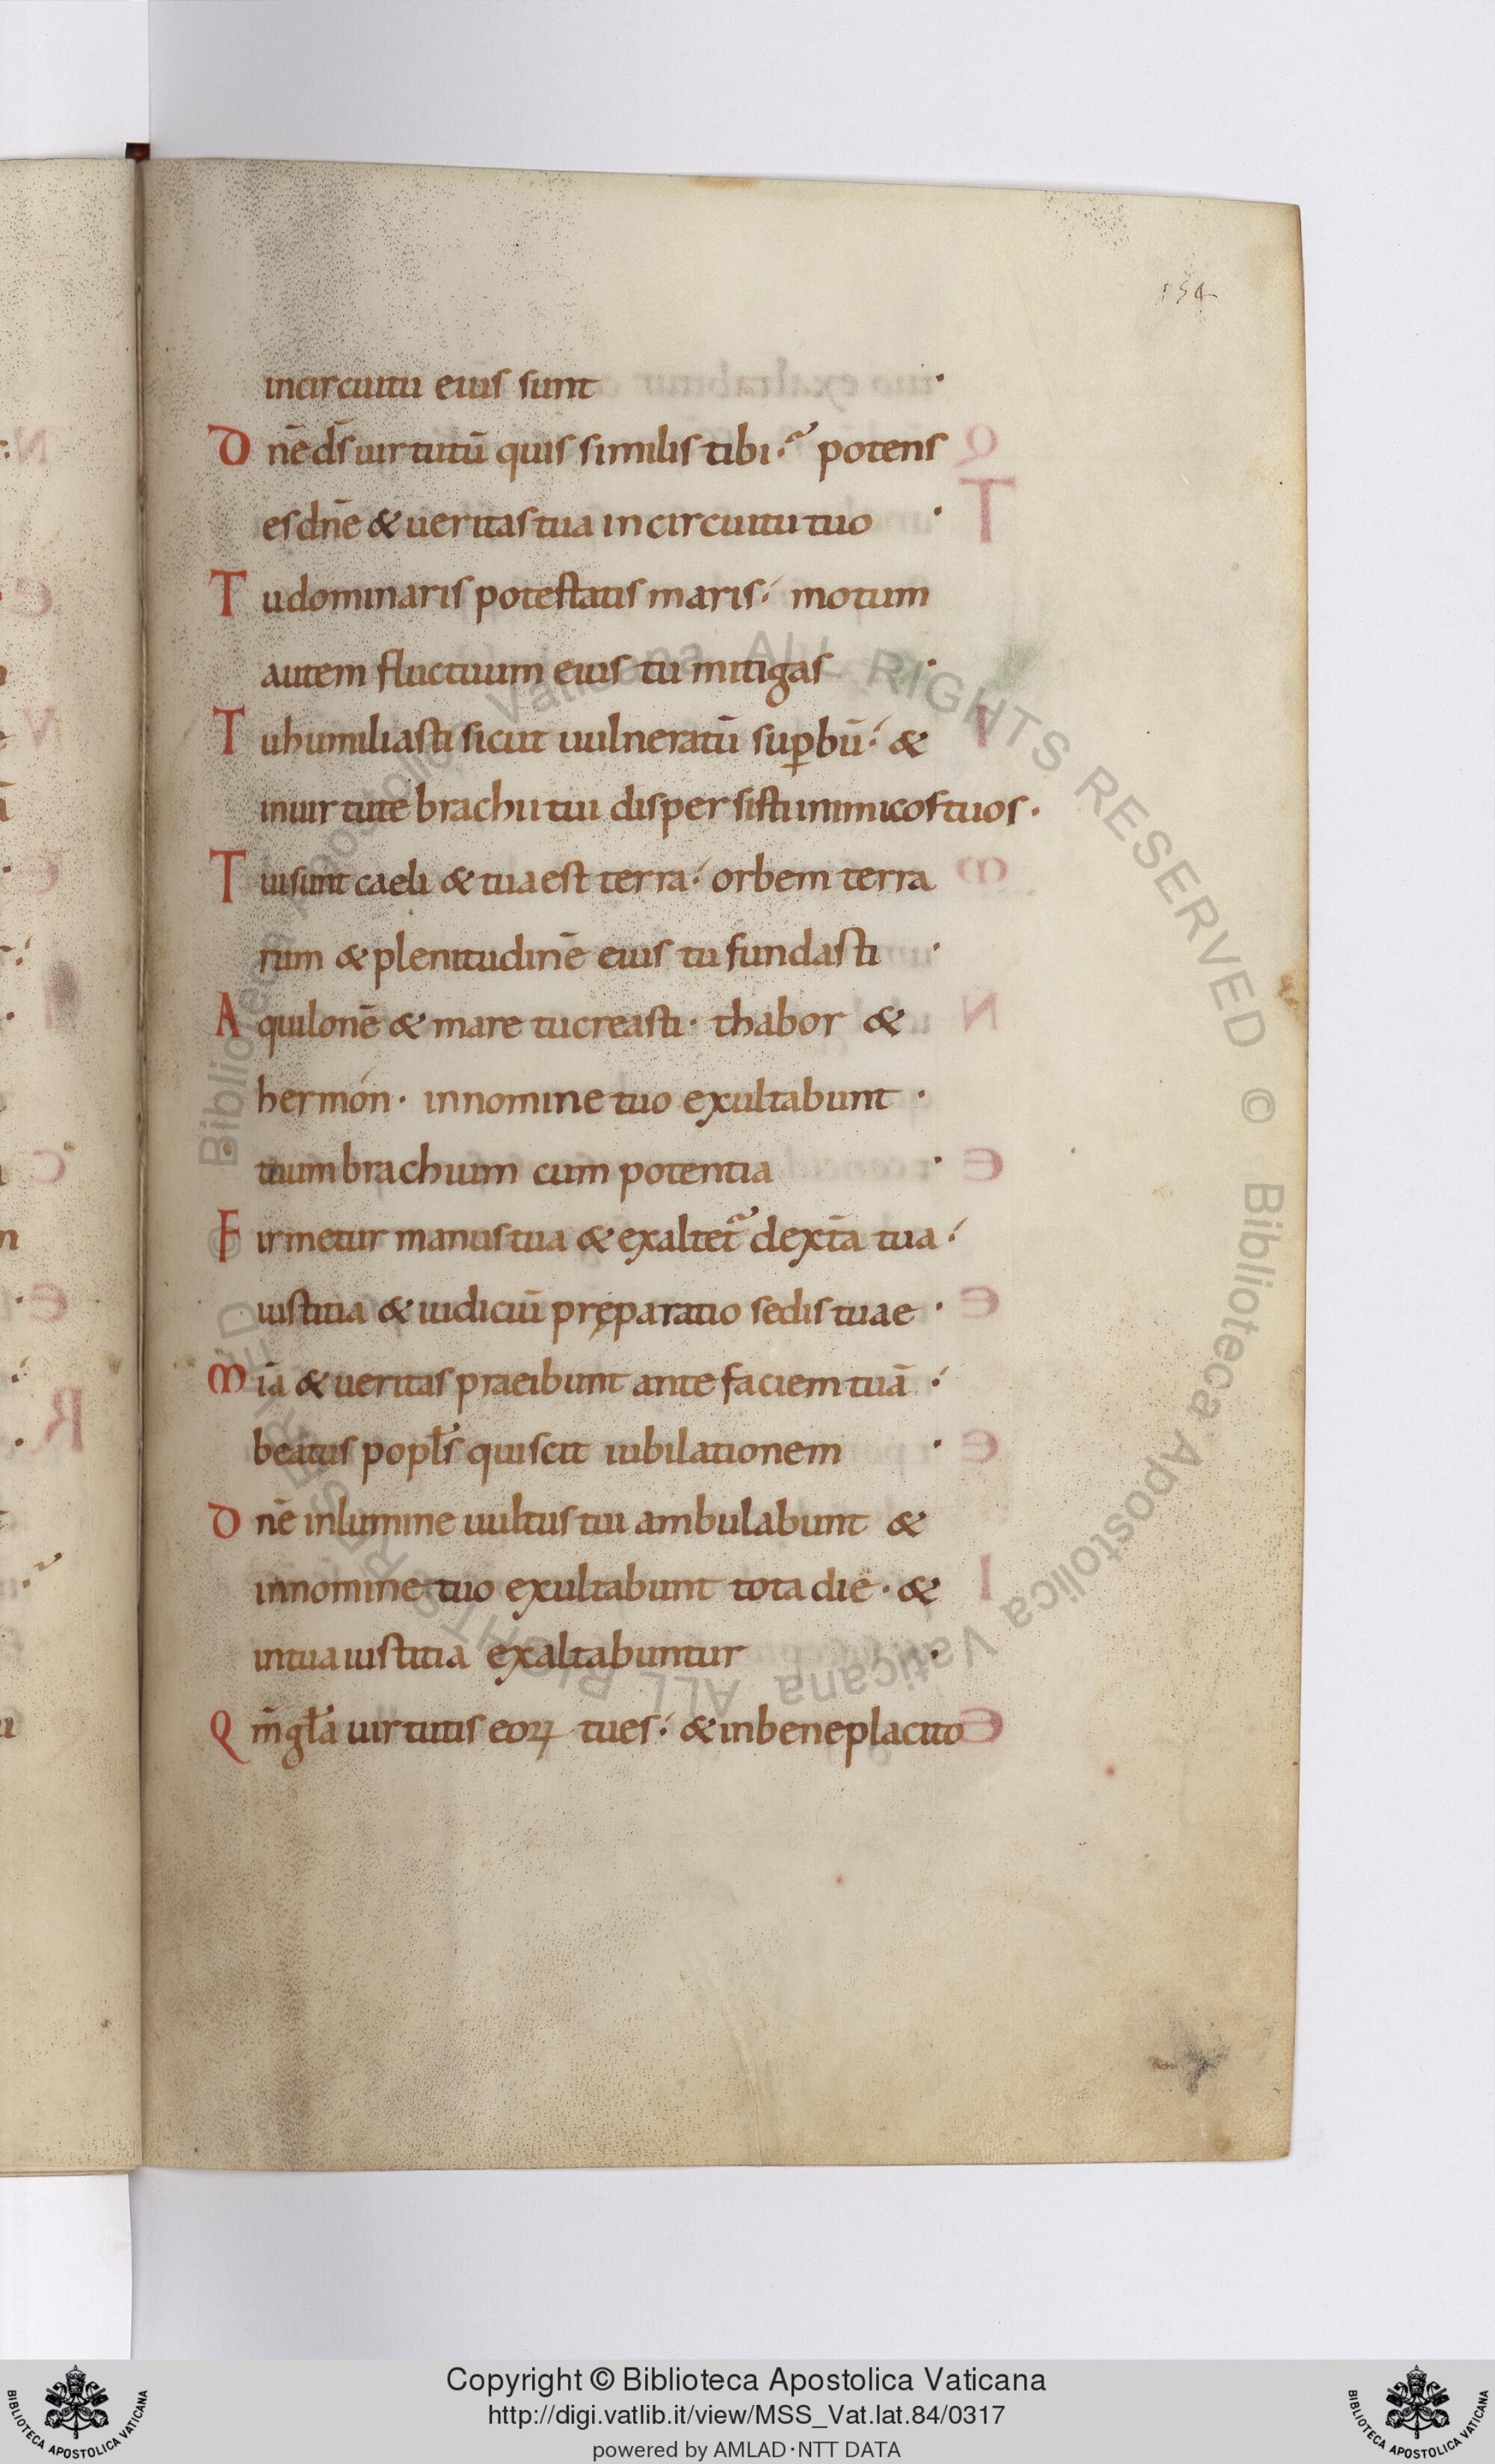 154
incircuitu eius sunt ·
Dñe d̄s uirtutū quis similis tibi· potens
es dñe & ueritas tua incircuitu tuo ·
Tu dominaris potestatis maris· motum
autem fluctuum eius tu mitigas ·
Tu humiliasti sicut uulneratū sup̱bū· &
inuirtute brachii tui dispersisti inimicos tuos ·
Tui sunt caeli & tua est terra· orbem terra
rum & plenitudinē eius tu fundasti ·
Aquilonē & mare tu creasti · thabor &
hermón · innomine tuo exultabunt ·
tuum brachium cum potentia ·
Firmetur manus tua & exaltet̄ dext̄a tua·
iustitia & iudiciū pręparatio sedis tuae ·
Mīa & ueritas praeibunt ante faciem tuā ·
beatus popl̄s qui scit iubilationem ·
Dñe inlumine uultus tui ambulabunt &
innomine tuo exultabunt tota die · &
intua iustitia exaltabuntur ·
Qm̄ gl̄a uirtutis eoꝝ tu es· & inbeneplacito
Copyright © Biblioteca Apostolica Vaticana
http://digi.vatlib.it/view/MSS_Vat.lat.84/0317
powered by AMLAD·NTT DATA
BIBLIOTECA APOSTOLICA VATICANA
BIBLIOTECA APOSTOLICA VATICANA
Biblioteca Apostolica Vaticana ALL RIGHTS RESERVED ©
Biblioteca Apostolica Vaticana ALL RIGHTS RESERVED ©